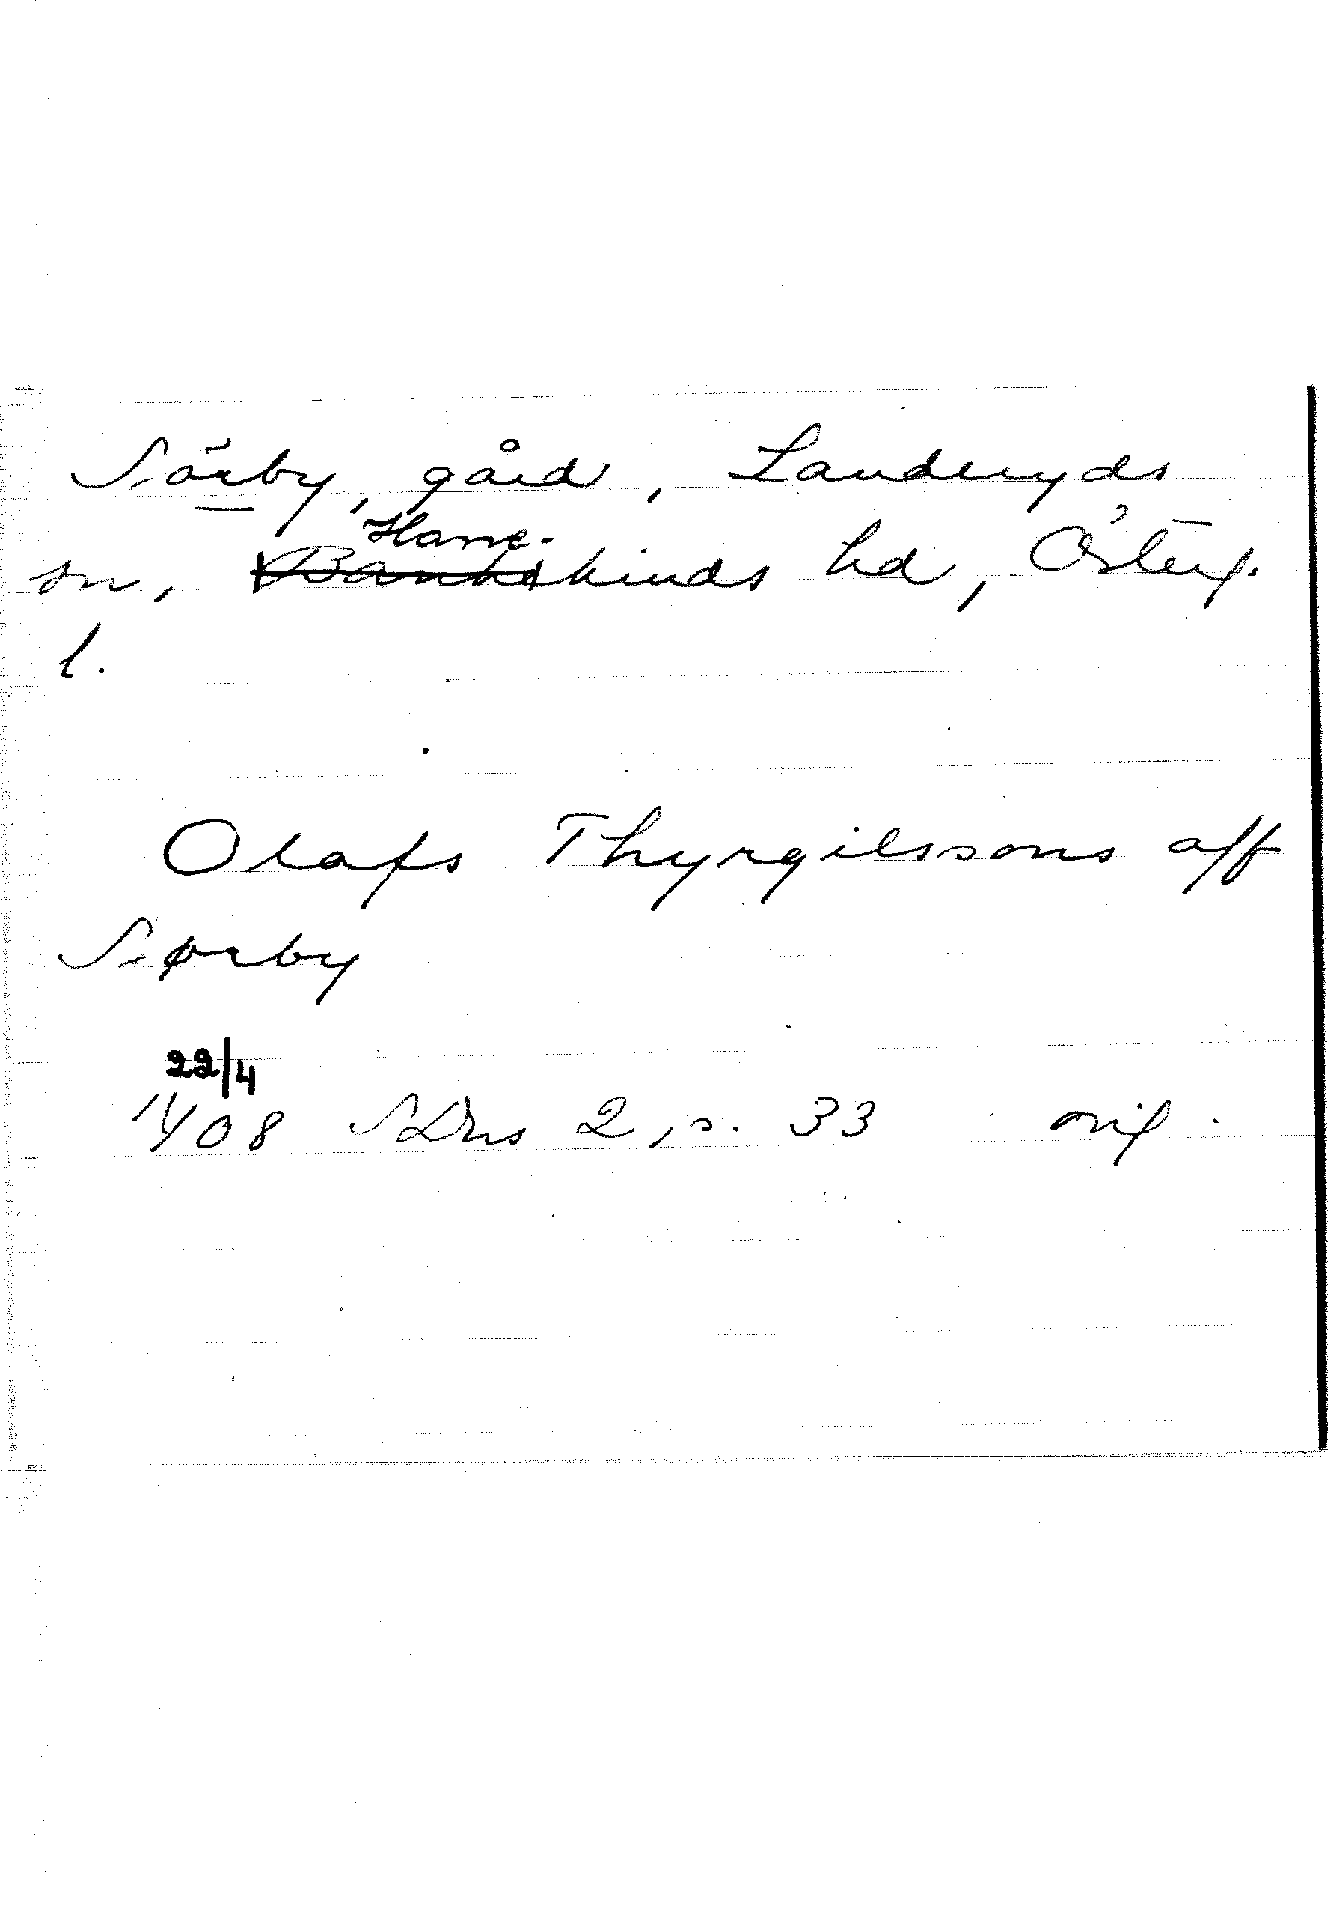 Sörby, gård, Landeryds
Hane-
sn, Bankekinds hd, Österg.
l.
Olafs Thyrgilssons aff
Sørby
22/4
1408 SDns 2, s. 33 orig.